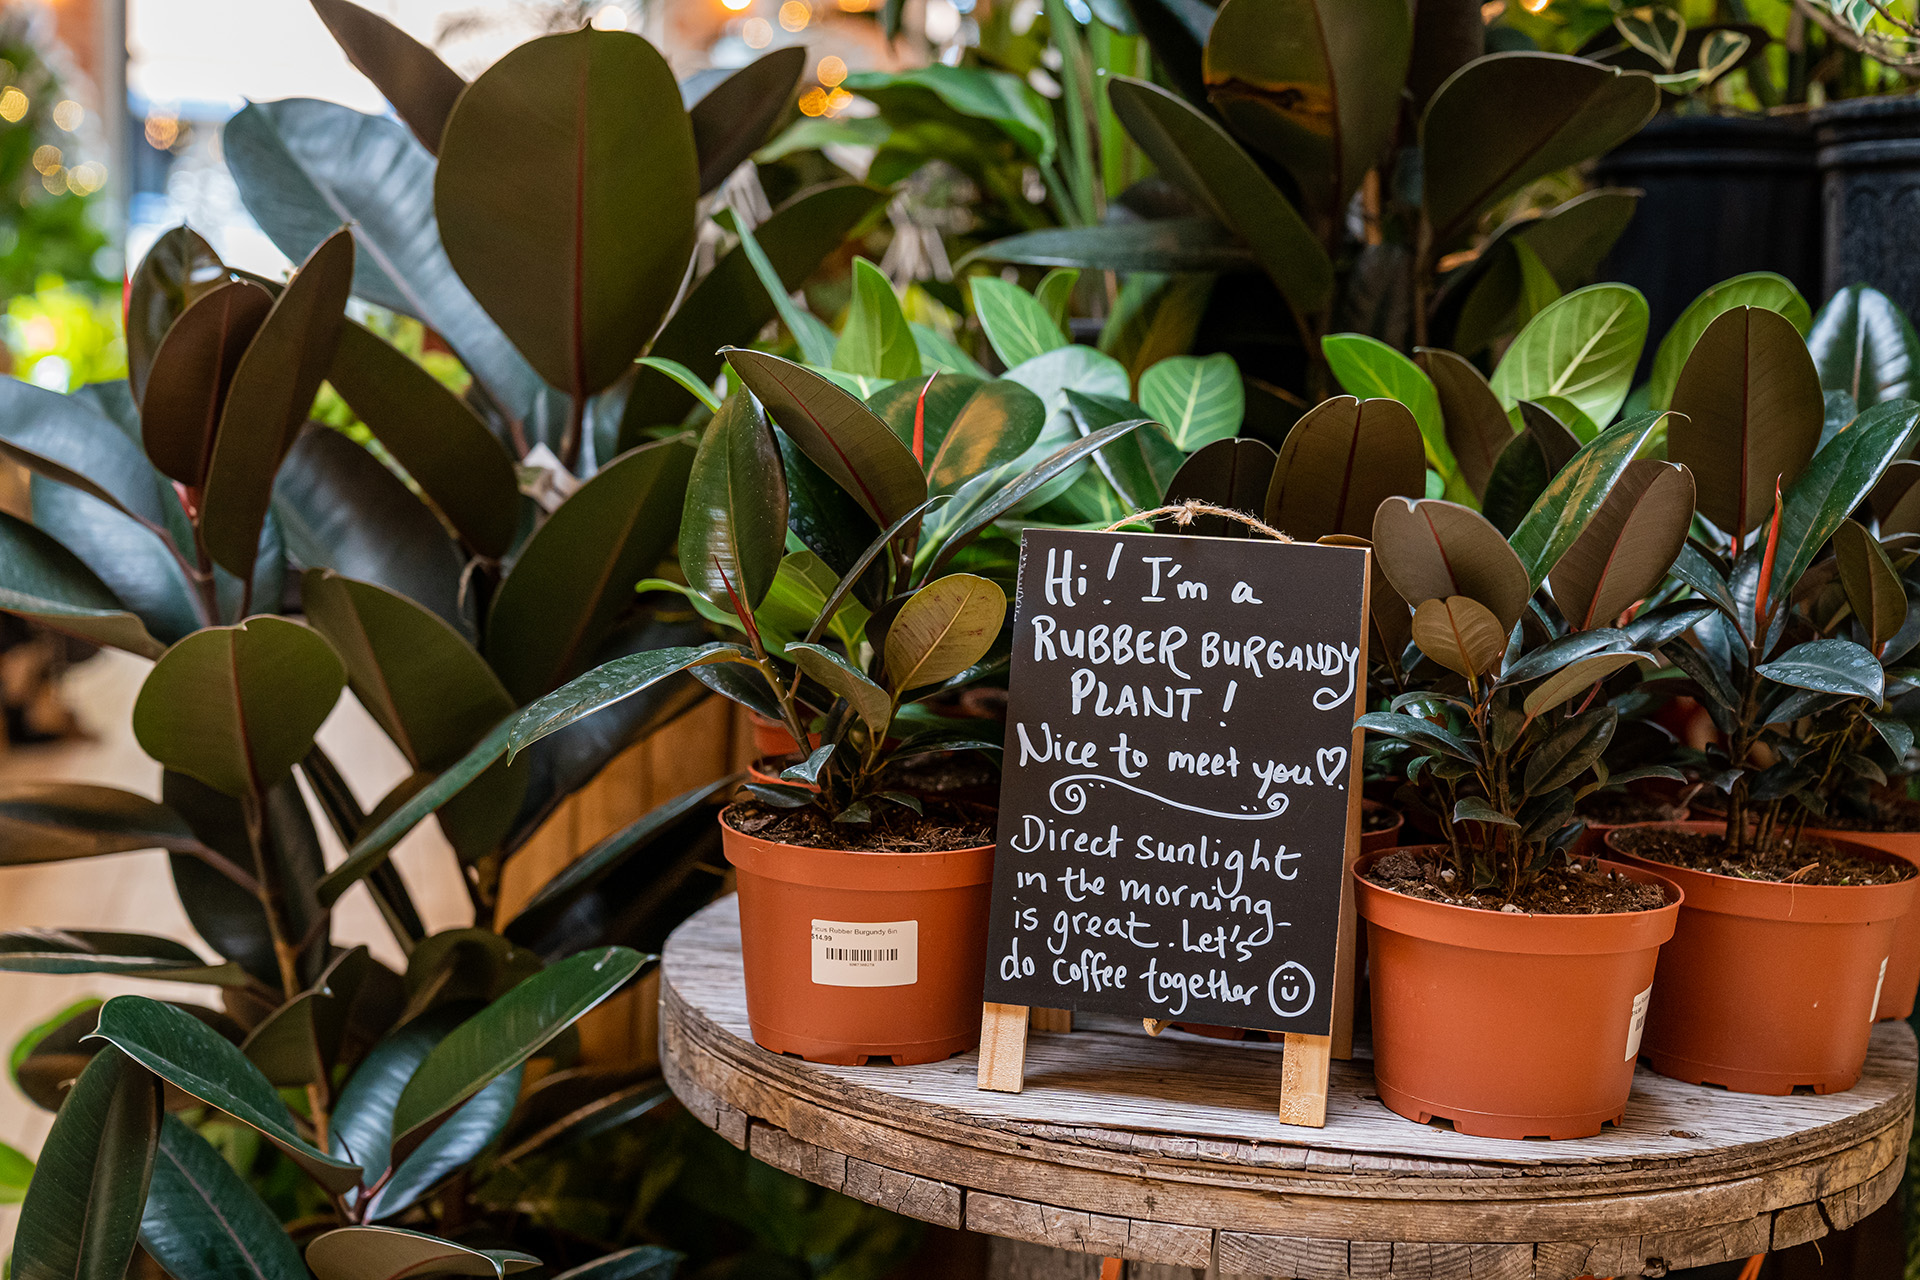 Hi! I'm a
RUBBER BURGANDY
PLANT!
Nice to meet you
Direct sunlight
in the morning
is great. Let's
do coffee together
Ficus Rubber Burgundy 6in
$14.99